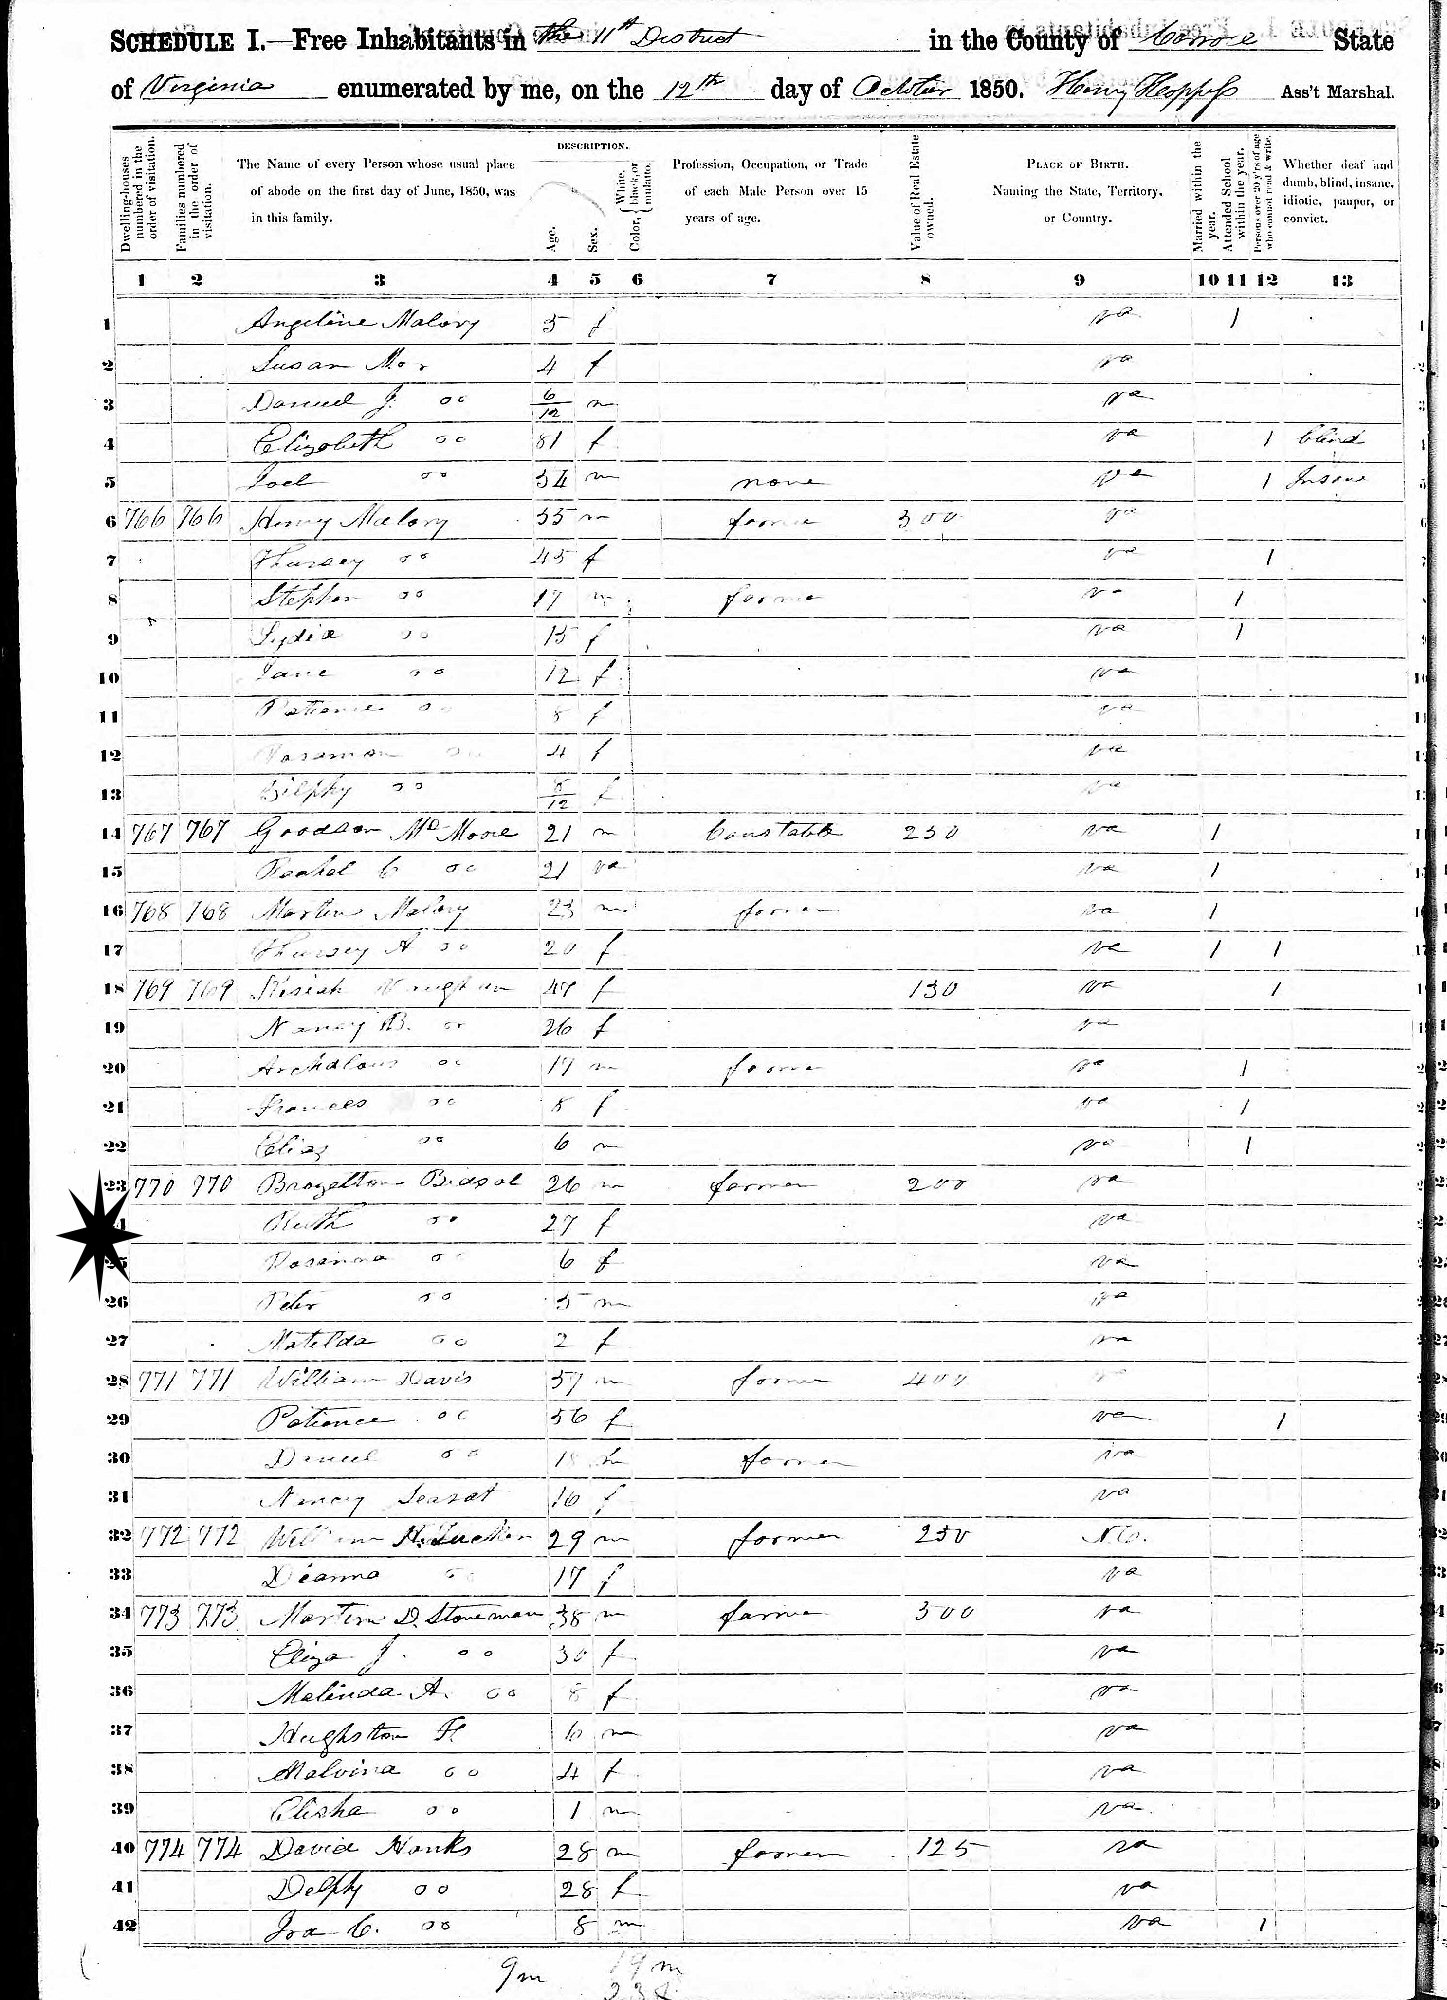 SCHEDULE I.—Free Inhabitants in the 11th District in the County of State
of Virginia enumerated by me, on the 12th day of October 1850. Henry Ass't Marshal.
Dwelling-houses numbered in the order of visitation.
Families numbered in the order of visitation.
The Name of every Person whose usual place of abode on the first day of June, 1850, was in this family.
DESCRIPTION.
Age.
Sex.
Color, White, black, or mulatto.
Profession, Occupation, or Trade of each Male Person over 15 years of age.
Value of Real Estate owned.
PLACE OF BIRTH. Naming the State, Territory, or Country.
Married within the year.
Attended School within the year.
Persons over 20 y'rs of age who cannot read & write.
Whether deaf and dumb, blind, insane, idiotic, pauper, or convict.
1 2 3 4 5 6 7 8 9 10 11 12 13
1 Angeline Malory 5 f va 1
2 Susan 4 f va
3 Daniel J. oo 6/12 m va
4 Elizabeth oo 81 f va 1 blind
5 Joel oo 34 m none va 1 Insane
6 766 766 Henry Malory 55 m farmer 300 va
7 Thursey oo 45 f va 1
8 Stephen oo 17 m farmer va 1
9 Lydia oo 15 f va 1
10 Jane oo 12 f va
11 Patience oo 8 f va
12 oo 4 f va
13 oo 8/12 f va
14 767 767 Goodson Mc Moore 21 m Constable 250 va 1
15 Rachel C oo 21 va va 1
16 768 768 Martin Malory 23 m farmer va 1
17 Thursey A oo 20 f va 1 1
18 769 769 Kesiah Vaughan 47 f 130 va 1
19 Nancy B. oo 26 f va
20 oo 17 m farmer va 1
21 Frances oo 8 f va 1
22 oo 6 m va 1
23 770 770 26 m farmer 200 va
24 Ruth oo 27 f va
25 Rosanna oo 6 f va
26 Peter oo 5 m va
27 Matilda oo 2 f va
28 771 771 William Davis 57 m farmer 400 va
29 Patience oo 56 f va 1
30 Daniel oo 18 m farmer va
31 Nancy 16 f va
32 772 772 William H. 29 m farmer 250 N.C.
33 Dianna oo 17 f va
34 773 773 Martin D. Stoneman 38 m farmer 300 va
35 Eliza J. oo 30 f va
36 Malinda A. oo 8 f va
37 Hughston 6 m va
38 Malvina oo 4 f va
39 Elisha oo 1 m va
40 774 774 David Hanks 28 m farmer 125 va
41 Delphy oo 28 f va
42 Ira C. oo 8 m va 1
9m 19 m